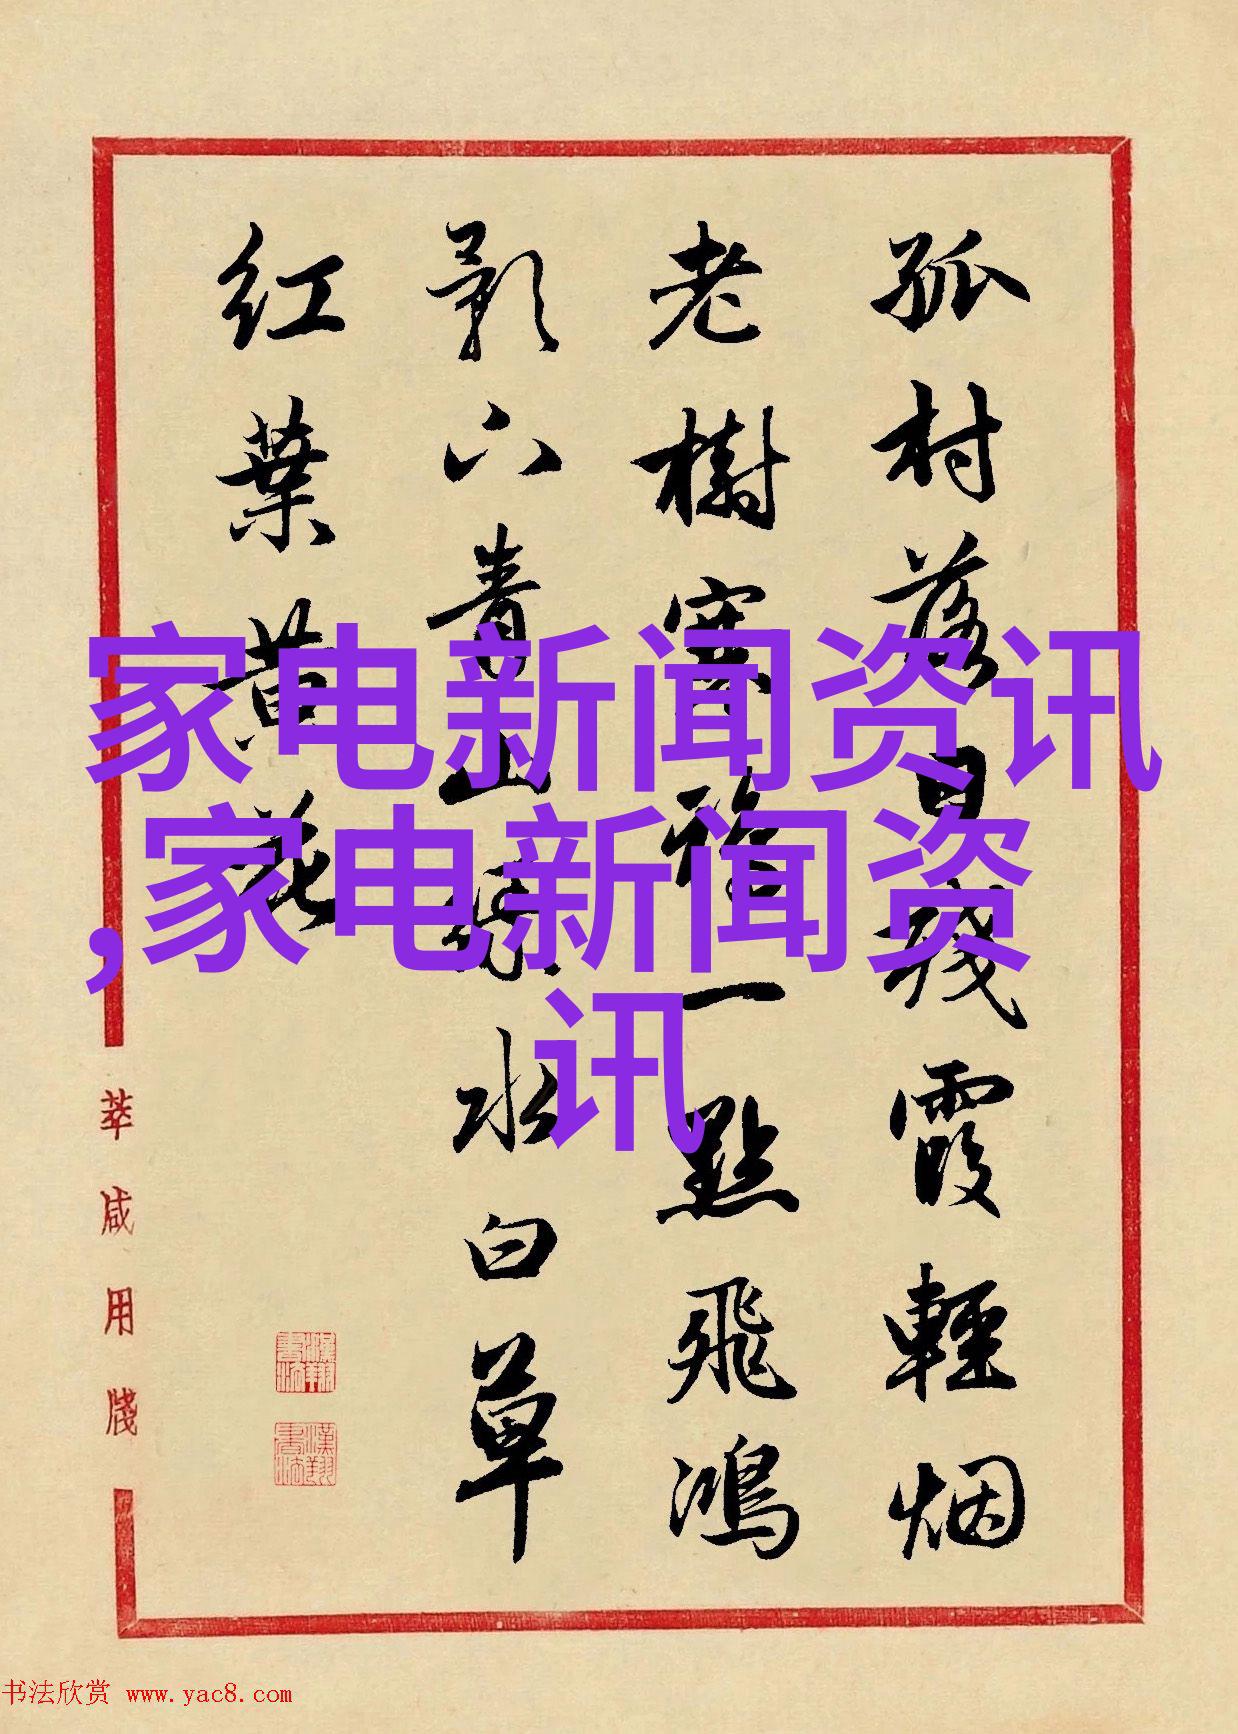 孤村落日残霞輕烟
老樹寒鴉一點飛鴻
影下青山緑水白草
红葉黄花
萃咸用牋
家电新闻资讯
,家电新闻资
讯
书法欣赏 www.yac8.com